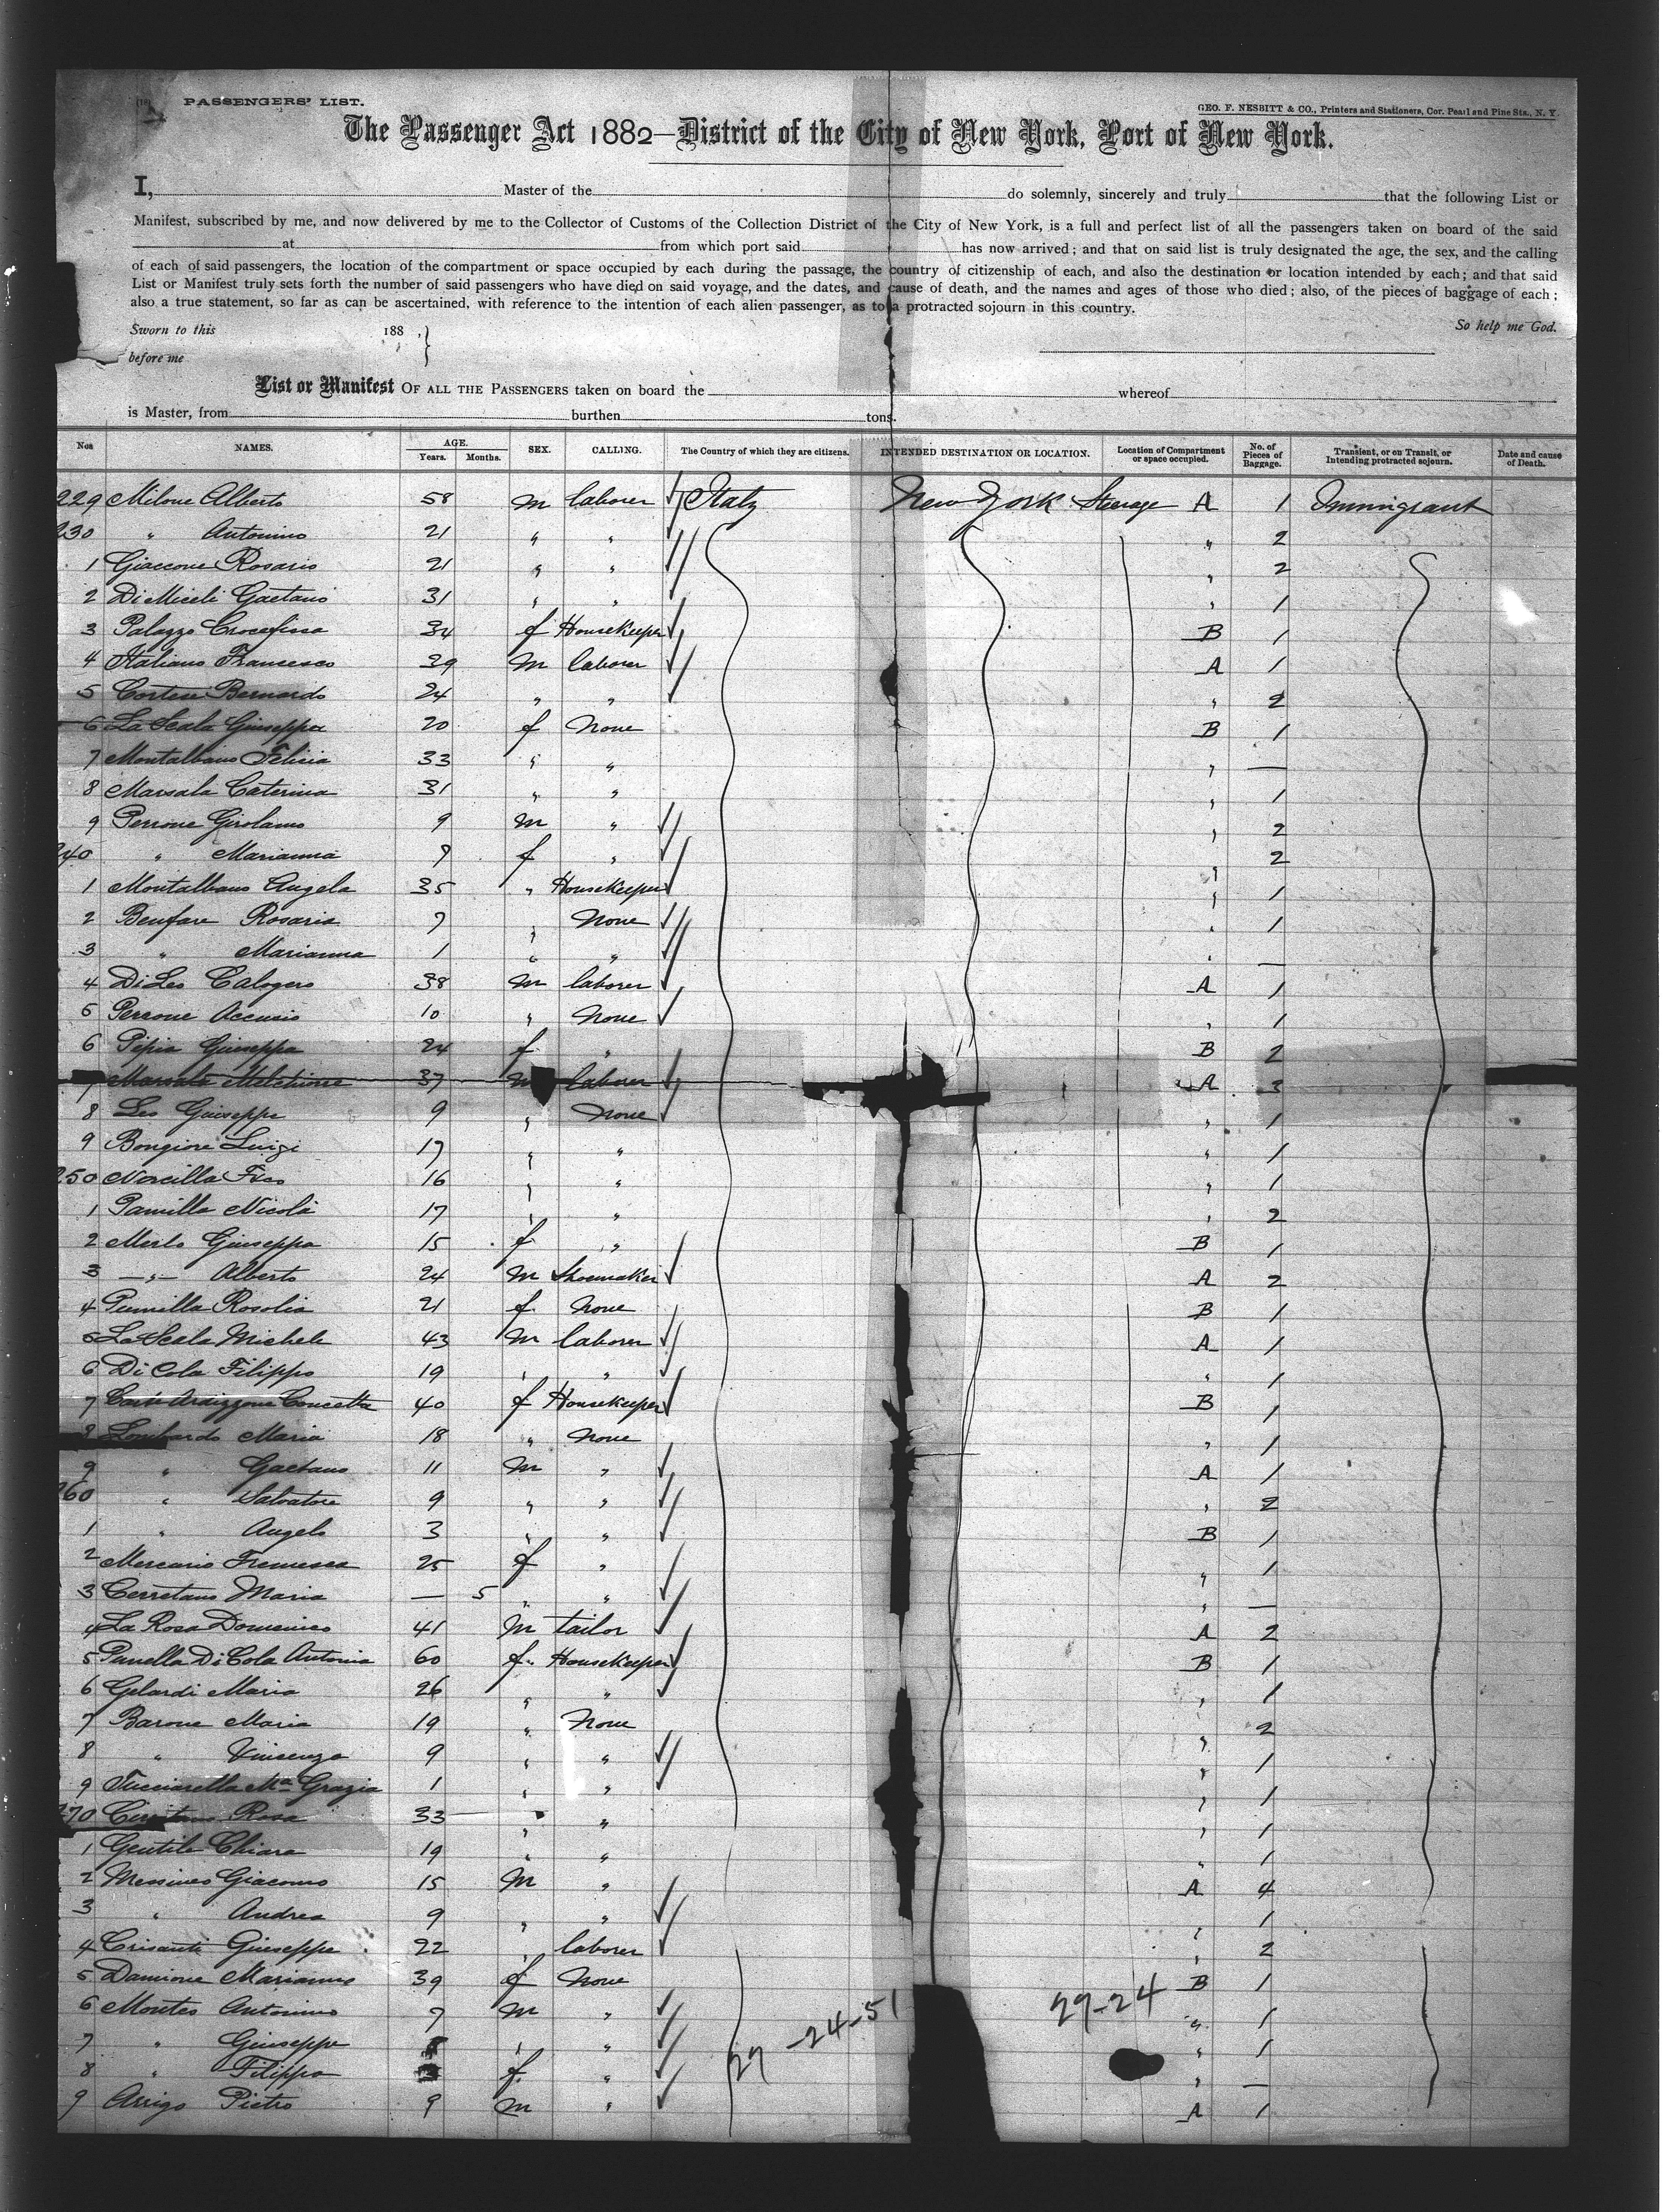 PASSENGERS' LIST.
GEO. F. NESBITT & CO., Printers and Stationers, Cor. Pearl and Pine Sts., N. Y.
The Passenger Act 1882—District of the City of New York, Port of New York.
I, Master of the do solemnly, sincerely and truly that the following List or
Manifest, subscribed by me, and now delivered by me to the Collector of Customs of the Collection District of the City of New York, is a full and perfect list of all the passengers taken on board of the said
at from which port said has now arrived; and that on said list is truly designated the age, the sex, and the calling
of each of said passengers, the location of the compartment or space occupied by each during the passage, the country of citizenship of each, and also the destination or location intended by each; and that said
List or Manifest truly sets forth the number of said passengers who have died on said voyage, and the dates, and cause of death, and the names and ages of those who died; also, of the pieces of baggage of each;
also a true statement, so far as can be ascertained, with reference to the intention of each alien passenger, as to a protracted sojourn in this country.
Sworn to this 188 So help me God.
before me
List or Manifest OF ALL THE PASSENGERS taken on board the whereof
is Master, from burthen tons.
Nos NAMES. AGE. Years. Months. SEX. CALLING. The Country of which they are citizens. INTENDED DESTINATION OR LOCATION. Location of Compartment or space occupied. No. of Pieces of Baggage. Transient, or on Transit, or Intending protracted sojourn. Date and cause of Death.
229 Milone Alberto 58 m laborer Italy New York Steerage A 1 Immigrant
230 " Antonino 21 " " " 2
1 Giaccone Rosario 21 " " " 2
2 Di Miceli Gaetano 31 " " " 1
3 Palazzo Crocefissa 34 f Housekeeper B 1
4 Italiano Francesco 39 m laborer A 1
5 Cortese Bernardo 24 " " " 2
6 La Scala Giuseppa 20 f None B 1
7 Montalbano Felicia 33 " " " —
8 Marsala Caterina 31 " " " 1
9 Perrone Girolamo 9 m " " 2
240 " Marianna 9 f " " 2
1 Montalbano Angela 35 " Housekeeper " 1
2 Benfare Rosaria 7 " None " 1
3 " Marianna 1 " " " —
4 Di Leo Calogero 38 m laborer A 1
5 Perrone Accursio 10 " None " 1
6 Pipia Giuseppa 24 f " B 2
7 Marsala Melchiorre 37 m laborer A 3
8 Leo Giuseppe 9 " None " 1
9 Bongiore Luigi 17 " " " 1
250 Norcilla Fsco 16 " " " 1
1 Pamilla Nicola 17 " " " 2
2 Merlo Giuseppa 15 f " B 1
3 —"— Alberto 24 m Shoemaker A 2
4 Pumilla Rosolia 21 f None B 1
5 La Scala Michele 43 m laborer A 1
6 Di Cola Filippo 19 " " " 1
7 Ardizzone Concetta 40 f Housekeeper B 1
8 Lombardo Maria 18 " None " 1
9 " Gaetano 11 m " A 1
260 " Salvatore 9 " " " 2
1 " Angelo 3 " " B 1
2 Mercurio Francesca 25 f " " 1
3 Cerretano Maria — 5 " " " —
4 La Rosa Domenico 41 m tailor A 2
5 Di Cola Antonia 60 f Housekeeper B 1
6 Gelardi Maria 26 " " " 1
7 Barone Maria 19 " None " 2
8 " Vincenza 9 " " " 1
9 Tucciarella Ma Grazia 1 " " " 1
270 Rosa 33 " " " 1
1 Gentile Chiara 19 " " " 1
2 Messineo Giacomo 15 m " A 4
3 " Andrea 9 " " " 1
4 Crisanti Giuseppe 22 " laborer " 2
5 Damione Marianna 39 f None B 1
6 Montes Antonino 7 m " " 1
7 " Giuseppe " " " 1
8 " Filippa f " " —
9 Arrigo Pietro 9 m " A 1
27-24-51
27-24